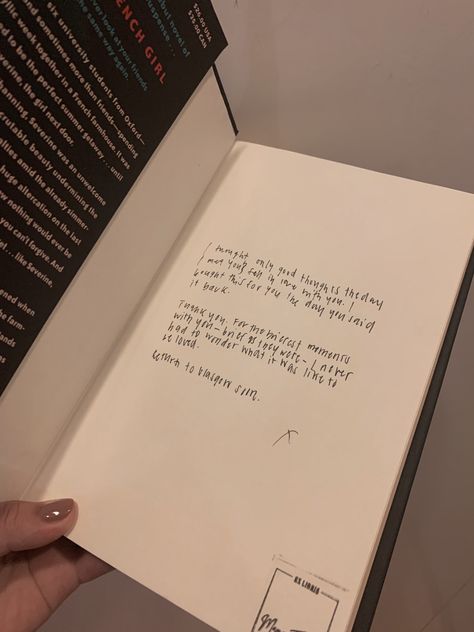 $26.00 USA
$35.00 CAN
ENCH GIRL
novel of
suspense...
ever look at your friends
the same way again.
six university students from Oxford—
and sometimes more than friends—spending
week together in a French farmhouse. It was
to be the perfect summer getaway... until
Severine, the girl next door.
Severine was an unwelcome
beauty undermining the
amid the already simmer-
huge altercation on the last
nothing would ever be
you can't forgive. And
like Severine,
the farm-
I thought only good thoughts the day
I met you & fell in love with you. I
bought this for you the day you said
it back.
Thank you. For the briefest moments
with you – brief as they were – I never
had to wonder what it was like to
be loved.
Return to Glasgow soon.
X
EX LIBRIS